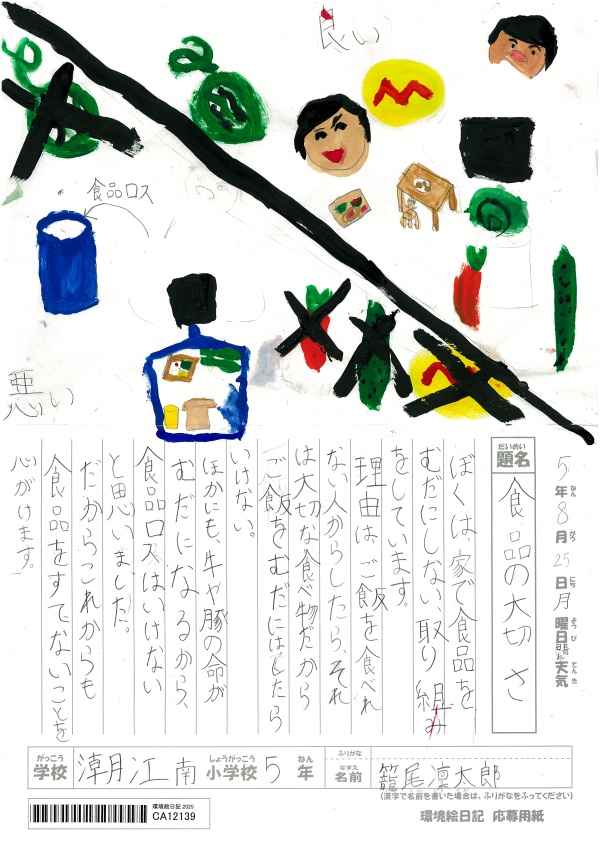 良い
食品ロス
悪い
5年8月25日月曜日
天気 晴れ
題名
だいめい
食品の大切さ
ぼくは、家で食品を
むだにしない、取り組み
をしています。
理由は、ご飯を食べれ
ない人からしたら、それ
は大切な食べ物だから
ご飯をむだにはしたら
いけない。
ほかにも、牛や豚の命が
むだになるから、
食品ロスはいけない
と思いました。
だからこれからも
食品をすてないことを
心がけます。
がっこう
学校
潮江南
しょうがっこう
小学校
5
ねん
年
ふりがな
なまえ
名前
籠尾凛太郎
(漢字で名前を書いた場合は、ふりがなをふってください)
環境絵日記2025
CA12139
環境絵日記 応募用紙